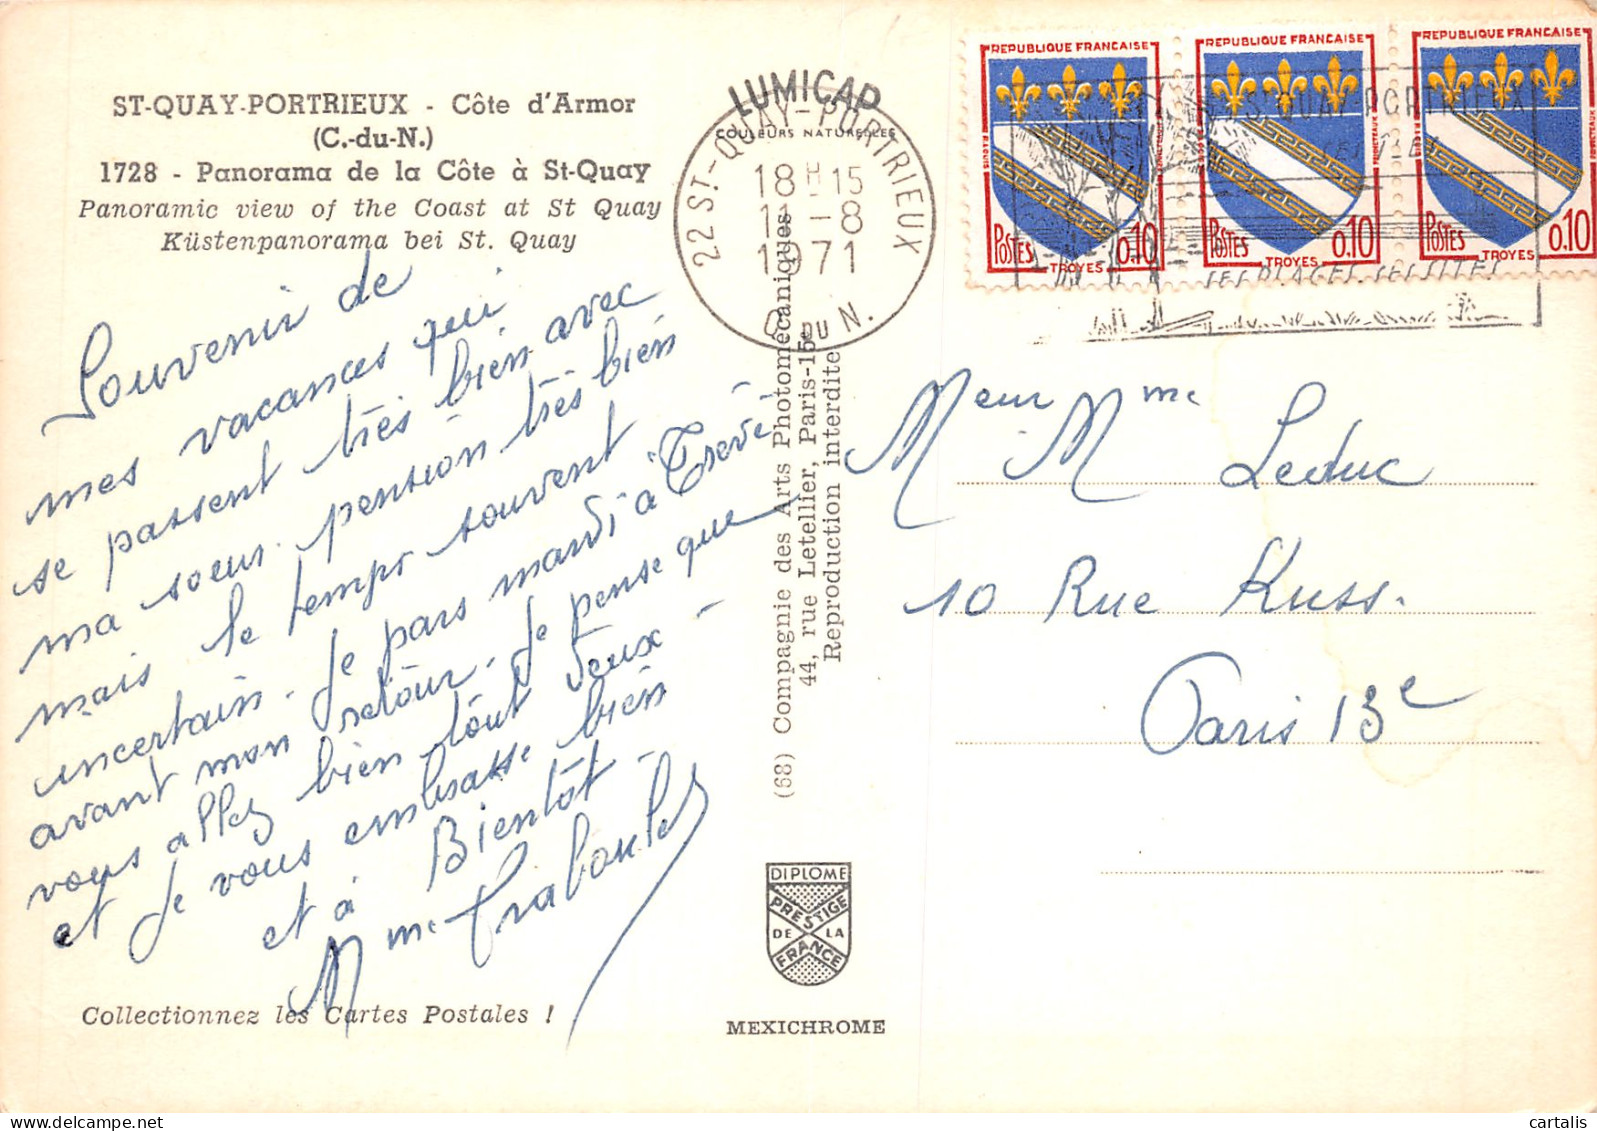 ST-QUAY-PORTRIEUX - Côte d'Armor
(C.-du-N.)
1728 - Panorama de la Côte à St-Quay
Panoramic view of the Coast at St Quay
Küstenpanorama bei St. Quay
Souvenir de
mes vacances qui
se passent très bien avec
ma soeur. pension très bien
mais le temps souvent
incertain. Je pars mardi à Trévé
avant mon retour. Je pense que
vous allez bien tout deux -
et je vous embrasse bien
et à Bientôt -
Mme
Collectionnez les Cartes Postales !
LUMICAP
COULEURS NATURELLES
22 ST-QUAY-PORTRIEUX
18 H 15
11 -8
1971
C. DU N.
(68) Compagnie des Arts Photomécaniques
44, rue Letellier, Paris-15e
Reproduction interdite
DIPLOME
PRESTIGE
DE LA
FRANCE
MEXICHROME
REPUBLIQUE FRANCAISE
POSTES 0.10
TROYES
REPUBLIQUE FRANCAISE
POSTES 0.10
TROYES
REPUBLIQUE FRANCAISE
POSTES 0.10
TROYES
ST-QUAY-PORTRIEUX
SES PLAGES. SES SITES
Meur Mme Leduc
10 Rue Kuss.
Paris 13e
cartalis